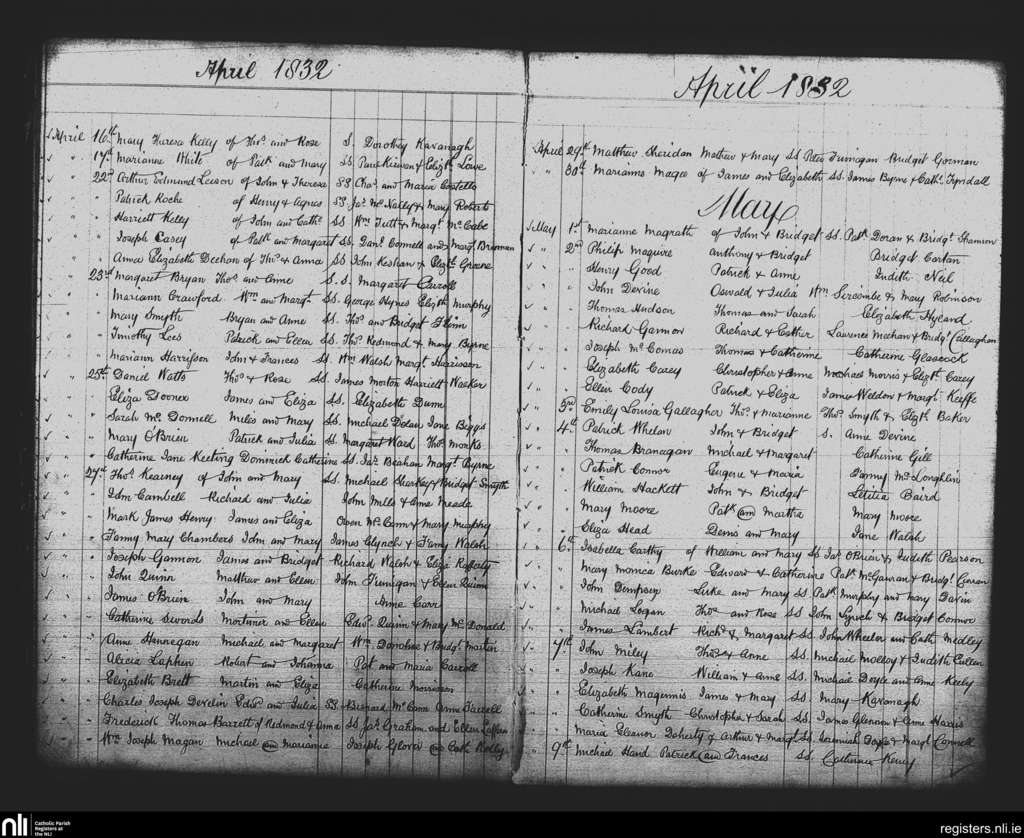 April 1832
April 16th Mary Theresa Kelly of Thos and Rose S. Dorothy Kavanagh
" 17th Marianne White of Patk and Mary SS. Paul Kirwan & Elizth Lowe
" 22nd Arthur Edmund Leeson of John & Theresa SS Chas and Maria Costello
" Patrick Roche of Henry & Agnes SS. Jas McNally & Mary Roberts
" Harriett Kelly of John and Cathe SS Wm Tutt & Margt McCabe
" Joseph Casey of Patk and Margaret SS. Danl Connell and Margt Brennan
" Anna Elizabeth Deehan of Thos & Anna SS John Keshan & Elizth Greene
" 23rd Margaret Bryan Thos and Anne S. S. Margaret Carroll
" Mariann Crawford Wm and Margt SS. George Hynes Elizth Murphy
" Mary Smyth Bryan and Anne SS. Thos and Bridget Flinn
" Timothy Lees Patrick and Ellen SS. Thos Redmond & Mary Byrne
" Mariann Harrisson John & Frances SS. Wm Walsh Margt Harrisson
" 25th Daniel Watts Thos & Rose SS. James Morton Harriett Walker
" Eliza James and Eliza SS. Elizabeth Dunn
" Sarah McDonnell Miles and Mary SS. Michael Dolan Jane Biggs
" Mary O'Brien Patrick and Julia SS. Margaret Ward Thos Monks
" Catherine Jane Keeting Dominick Catherine SS. Jas Beahan Margt Byrne
" 27th Thos Kearney of John and Mary SS. Michael Sharkey & Bridget Smyth
" John Cambell Richard and Julia John Mills & Anne Meade
" Mark James Henry James and Eliza Owen McCann & Mary Murphy
" Fanny Mary Chambers John and Mary James Clynch & Fanny Walsh
" Joseph Gannon James and Bridget Richard Walsh & Eliza Rafferty
" John Quinn Matthew and Ellen John Finnigan & Ellen Quinn
" James O'Brien John and Mary Anne Carr
" Catherine Swords Mortimer and Ellen Edwd Quinn & Mary McDonald
" Anne Hannegan Michael and Margaret Wm Donohue & Bridgt Martin
" Alicia Laphen Robert and Johanna Pat and Maria Carroll
" Elizabeth Brett Martin and Eliza Catherine Morrisson
" Charles Joseph Develin Edwd and Julia SS. Bernard McCann Anne Farrell
" Frederick Thomas Barrett of Redmond & Anne SS Jas Graham and Ellen Laffan
" Wm Joseph Magan Michael and Marianne Joseph Glover and Cath Kelly
April 1832
April 29th Matthew Sheridan Mathew & Mary SS Peter Finnigan Bridget Gorman
" 30th Marianne Magee of James and Elizabeth SS. James Byrne & Cathe Tyndall
May
May 1st Marianne Magrath of John & Bridget SS. Patk Doran & Bridgt Shannon
" 2nd Philip Maguire Anthony & Bridget Bridget Carton
" Henry Good Patrick & Anne Judith Neil
" John Devine Oswald & Julia Wm Sercombe & Mary Robinson
" Thomas Hudson Thomas and Sarah Elizabeth Hyland
" Richard Gannon Richard & Esther Laurence Meehan & Bridgt Callaghan
" Joseph McComas Thomas & Catherine Catherine Glascock
" Elizabeth Carey Christopher & Anne Michael Morris & Elizth Carey
" Ellen Cody Patrick & Eliza James Weldon & Margt Keeffe
" 3rd Emily Louisa Gallagher Thos & Marianne Thos Smyth & Elizth Baker
" 4th Patrick Whelan John & Bridget S. Anne Devine
" Thomas Branagan Michael & Margaret Catherine Gill
" Patrick Connor Eugene & Maria Fanny McLoughlin
" William Hackett John & Bridget Letitia Baird
" Mary Moore Patk and Martha Mary Moore
" Eliza Head Denis and Mary Jane Walsh
" 6th Isabella Carthy of William and Mary SS Jas O'Brien & Judith Pearson
" Mary Monica Burke Edward & Catherine Patk McGawran & Bridgt Cieran
" John Dempsey Luke and Mary SS Patk Murphy and Mary Davin
" Michael Logan Thos and Rose SS John Lynch & Bridget Connor
" James Lambert Richd & Margaret SS. John Wheeler and Cath Medley
" 7th John Miley Thos & Anne SS. Michael Molloy & Judith Cullen
" Joseph Kane William & Anne SS. Michael Doyle and Anne Keely
" Elizabeth Magennis James & Mary SS. Mary Kavanagh
" Catherine Smyth Christopher & Sarah SS. James Glennon & Anne Harris
" Maria Eleanor Doherty of Arthur & Margt SS. Jeremiah Doyle & Margt Connell
" 9th Michael Hand Patrick and Frances SS. Catherine Kenny
nli
Catholic Parish
Registers at
the NLI
registers.nli.ie